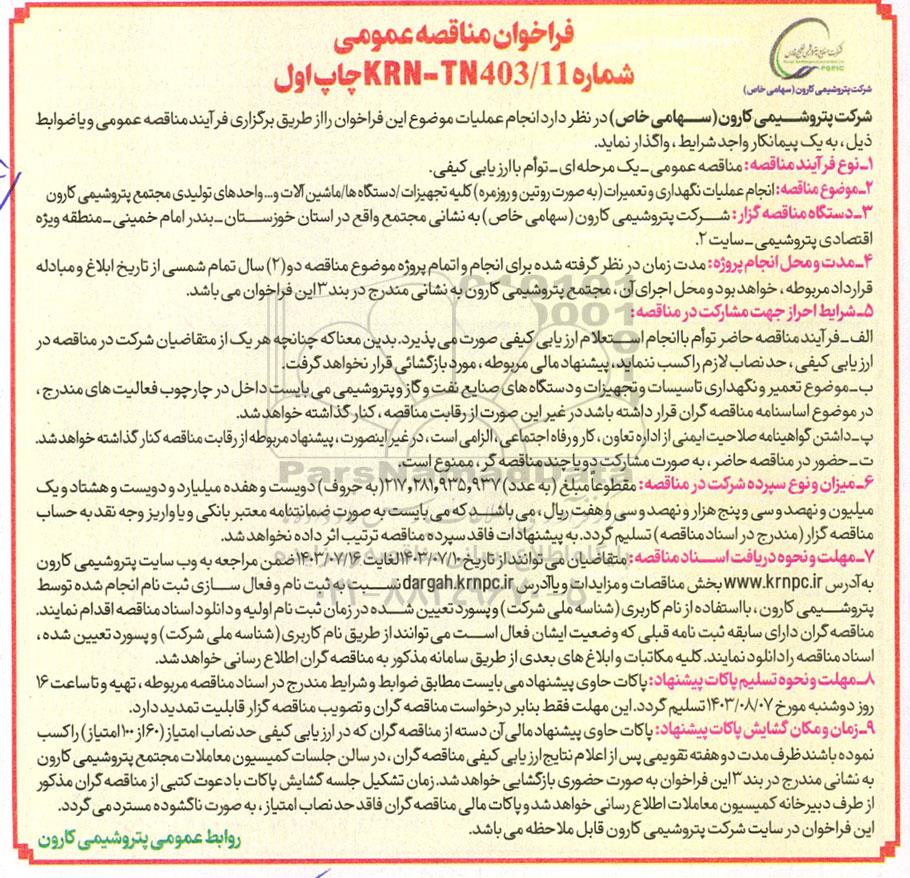 فراخوان مناقصه عمومی
شماره KRN-TN403/11 چاپ اول
PGPIC
شرکت پتروشیمی کارون (سهامی خاص)
شرکت پتروشیمی کارون (سهامی خاص) در نظر دارد انجام عملیات موضوع این فراخوان را از طریق برگزاری فرآیند مناقصه عمومی و با ضوابط
ذیل ، به یک پیمانکار واجد شرایط ، واگذار نماید.
۱ـ نوع فرآیند مناقصه: مناقصه عمومی ـ یک مرحله ای ـ توأم با ارزیابی کیفی.
۲ـ موضوع مناقصه: انجام عملیات نگهداری و تعمیرات (به صورت روتین و روزمره) کلیه تجهیزات/دستگاه ها/ماشین آلات و... واحدهای تولیدی مجتمع پتروشیمی کارون
۳ـ دستگاه مناقصه گزار: شرکت پتروشیمی کارون (سهامی خاص) به نشانی مجتمع واقع در استان خوزستان ـ بندر امام خمینی ـ منطقه ویژه
اقتصادی پتروشیمی ـ سایت ۲.
۴ـ مدت و محل انجام پروژه: مدت زمان در نظر گرفته شده برای انجام و اتمام پروژه موضوع مناقصه دو (۲) سال تمام شمسی از تاریخ ابلاغ و مبادله
قرارداد مربوطه ، خواهد بود و محل اجرای آن ، مجتمع پتروشیمی کارون به نشانی مندرج در بند ۳ این فراخوان می باشد.
۵ـ شرایط احراز جهت مشارکت در مناقصه:
الف ـ فرآیند مناقصه حاضر توأم با انجام استعلام ارزیابی کیفی صورت می پذیرد. بدین معنا که چنانچه هر یک از متقاضیان شرکت در مناقصه در
ارزیابی کیفی ، حد نصاب لازم را کسب ننماید، پیشنهاد مالی مربوطه ، مورد بازگشائی قرار نخواهد گرفت.
ب ـ موضوع تعمیر و نگهداری تاسیسات و تجهیزات و دستگاه های صنایع نفت و گاز و پتروشیمی می بایست داخل در چارچوب فعالیت های مندرج ،
در موضوع اساسنامه مناقصه گران قرار داشته باشد در غیر این صورت از رقابت مناقصه ، کنار گذاشته خواهد شد.
پ ـ داشتن گواهینامه صلاحیت ایمنی از اداره تعاون ، کار و رفاه اجتماعی ، الزامی است ، در غیر اینصورت ، پیشنهاد مربوطه از رقابت مناقصه کنار گذاشته خواهد شد.
ت ـ حضور در مناقصه حاضر ، به صورت مشارکت دو یا چند مناقصه گر ، ممنوع است.
۶ـ میزان و نوع سپرده شرکت در مناقصه: مقطوعا مبلغ (به عدد) ۲۱۷,۲۸۱,۹۳۵,۹۳۷ (به حروف) دویست و هفده میلیارد و دویست و هشتاد و یک
میلیون و نهصد و سی و پنج هزار و نهصد و سی و هفت ریال ، می باشد که می بایست به صورت ضمانتنامه معتبر بانکی و یا واریز وجه نقد به حساب
مناقصه گزار (مندرج در اسناد مناقصه) تسلیم گردد. به پیشنهادات فاقد سپرده مناقصه ترتیب اثر داده نخواهد شد.
۷ـ مهلت و نحوه دریافت اسناد مناقصه: متقاضیان می توانند از تاریخ ۱۴۰۳/۰۷/۱۰ لغایت ۱۴۰۳/۰۷/۱۶ ضمن مراجعه به وب سایت پتروشیمی کارون
به آدرس www.krnpc.ir بخش مناقصات و مزایدات و یا آدرس dargah.krnpc.ir نسبت به ثبت نام و فعال سازی ثبت نام انجام شده توسط
پتروشیمی کارون ، با استفاده از نام کاربری (شناسه ملی شرکت) و پسورد تعیین شده در زمان ثبت نام اولیه و دانلود اسناد مناقصه اقدام نمایند.
مناقصه گران دارای سابقه ثبت نامه قبلی که وضعیت ایشان فعال است می توانند از طریق نام کاربری (شناسه ملی شرکت) و پسورد تعیین شده ،
اسناد مناقصه را دانلود نمایند. کلیه مکاتبات و ابلاغ های بعدی از طریق سامانه مذکور به مناقصه گران اطلاع رسانی خواهد شد.
۸ـ مهلت و نحوه تسلیم پاکات پیشنهاد: پاکات حاوی پیشنهاد می بایست مطابق ضوابط و شرایط مندرج در اسناد مناقصه مربوطه ، تهیه و تا ساعت ۱۶
روز دوشنبه مورخ ۱۴۰۳/۰۸/۰۷ تسلیم گردد. این مهلت فقط بنا بر درخواست مناقصه گران و تصویب مناقصه گزار قابلیت تمدید دارد.
۹ـ زمان و مکان گشایش پاکات پیشنهاد: پاکات حاوی پیشنهاد مالی آن دسته از مناقصه گران که در ارزیابی کیفی حد نصاب امتیاز (۶۰ از ۱۰۰ امتیاز) را کسب
نموده باشند ظرف مدت دو هفته تقویمی پس از اعلام نتایج ارزیابی کیفی مناقصه گران ، در سالن جلسات کمیسیون معاملات مجتمع پتروشیمی کارون
به نشانی مندرج در بند ۳ این فراخوان به صورت حضوری بازگشایی خواهد شد. زمان تشکیل جلسه گشایش پاکات با دعوت کتبی از مناقصه گران مذکور
از طرف دبیرخانه کمیسیون معاملات اطلاع رسانی خواهد شد و پاکات مالی مناقصه گران فاقد حد نصاب امتیاز ، به صورت ناگشوده مسترد می گردد.
این فراخوان در سایت شرکت پتروشیمی کارون قابل ملاحظه می باشد.
روابط عمومی پتروشیمی کارون